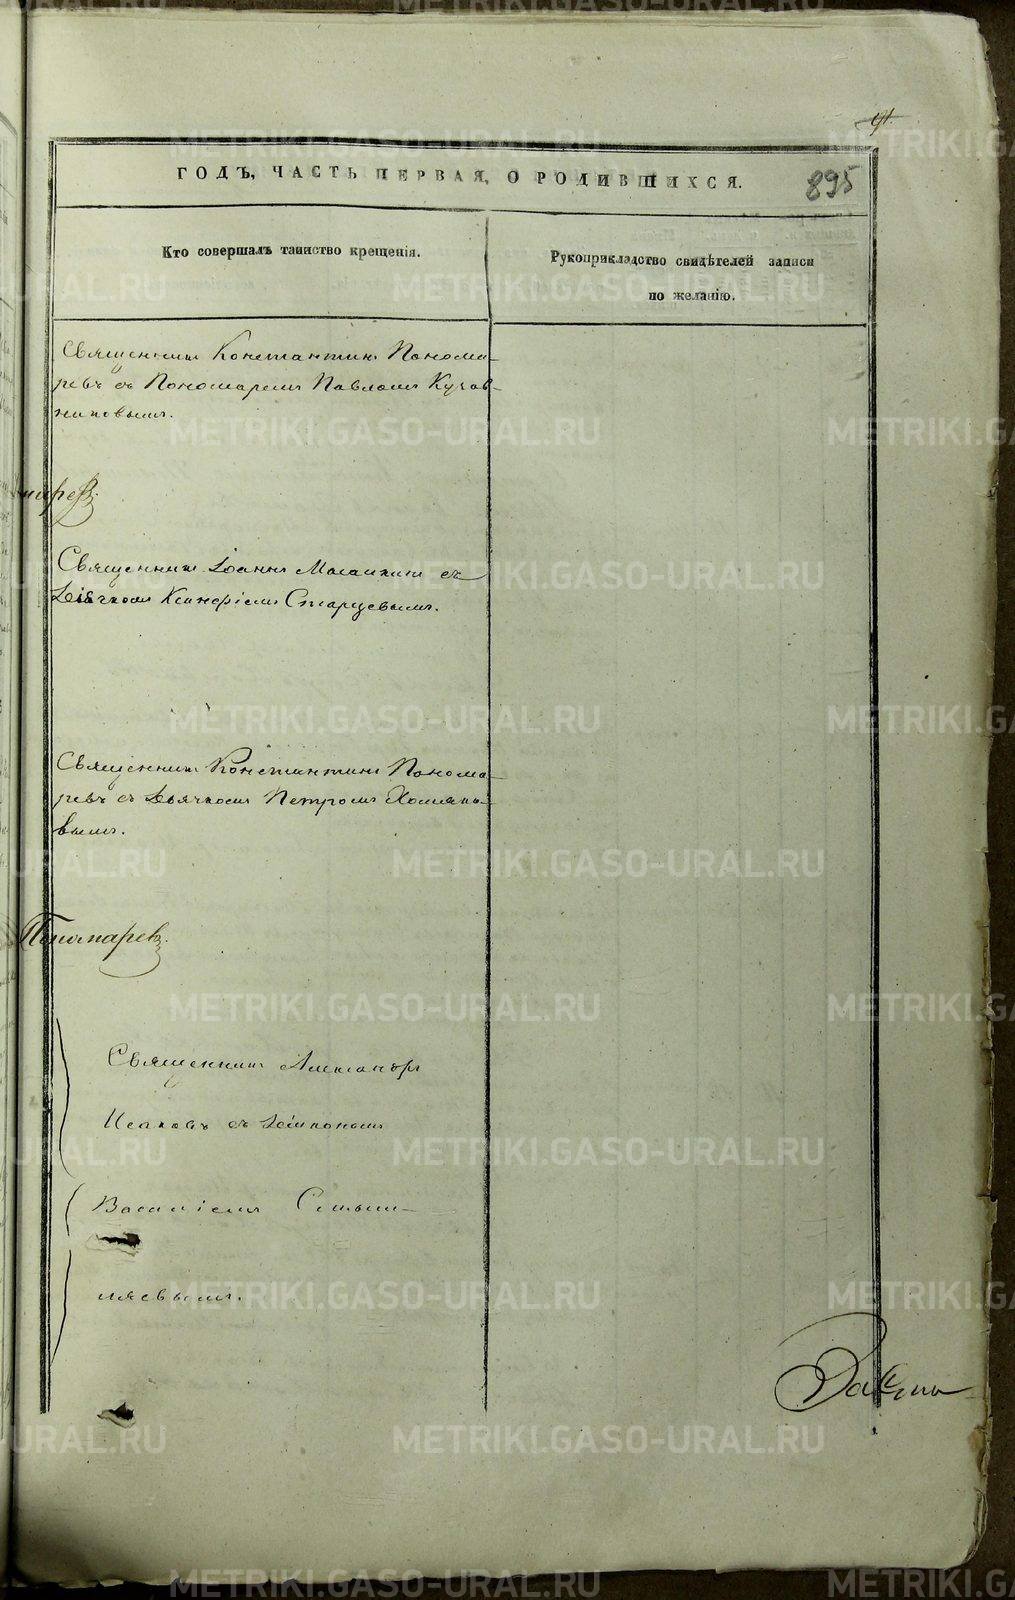 91.
ГОДЪ, ЧАСТЬ ПЕРВАЯ, О РОДИВШИХСЯ.
895
Кто совершалъ таинство крещенія.
Рукоприкладство свидѣтелей записи
по желанію.
Священникъ Константинъ Понома-
ревъ съ Пономаремъ Павломъ
никовымъ.
Священникъ Іоаннъ съ
Дьячкомъ Старцевымъ.
Священникъ Константинъ Понома-
ревъ съ Дьячкомъ Петромъ Хомяко-
вымъ.
Пономаревъ.
Священникъ Александръ
Исаковъ съ Діакономъ
Василіемъ
METRIKI.GASO-URAL.RU